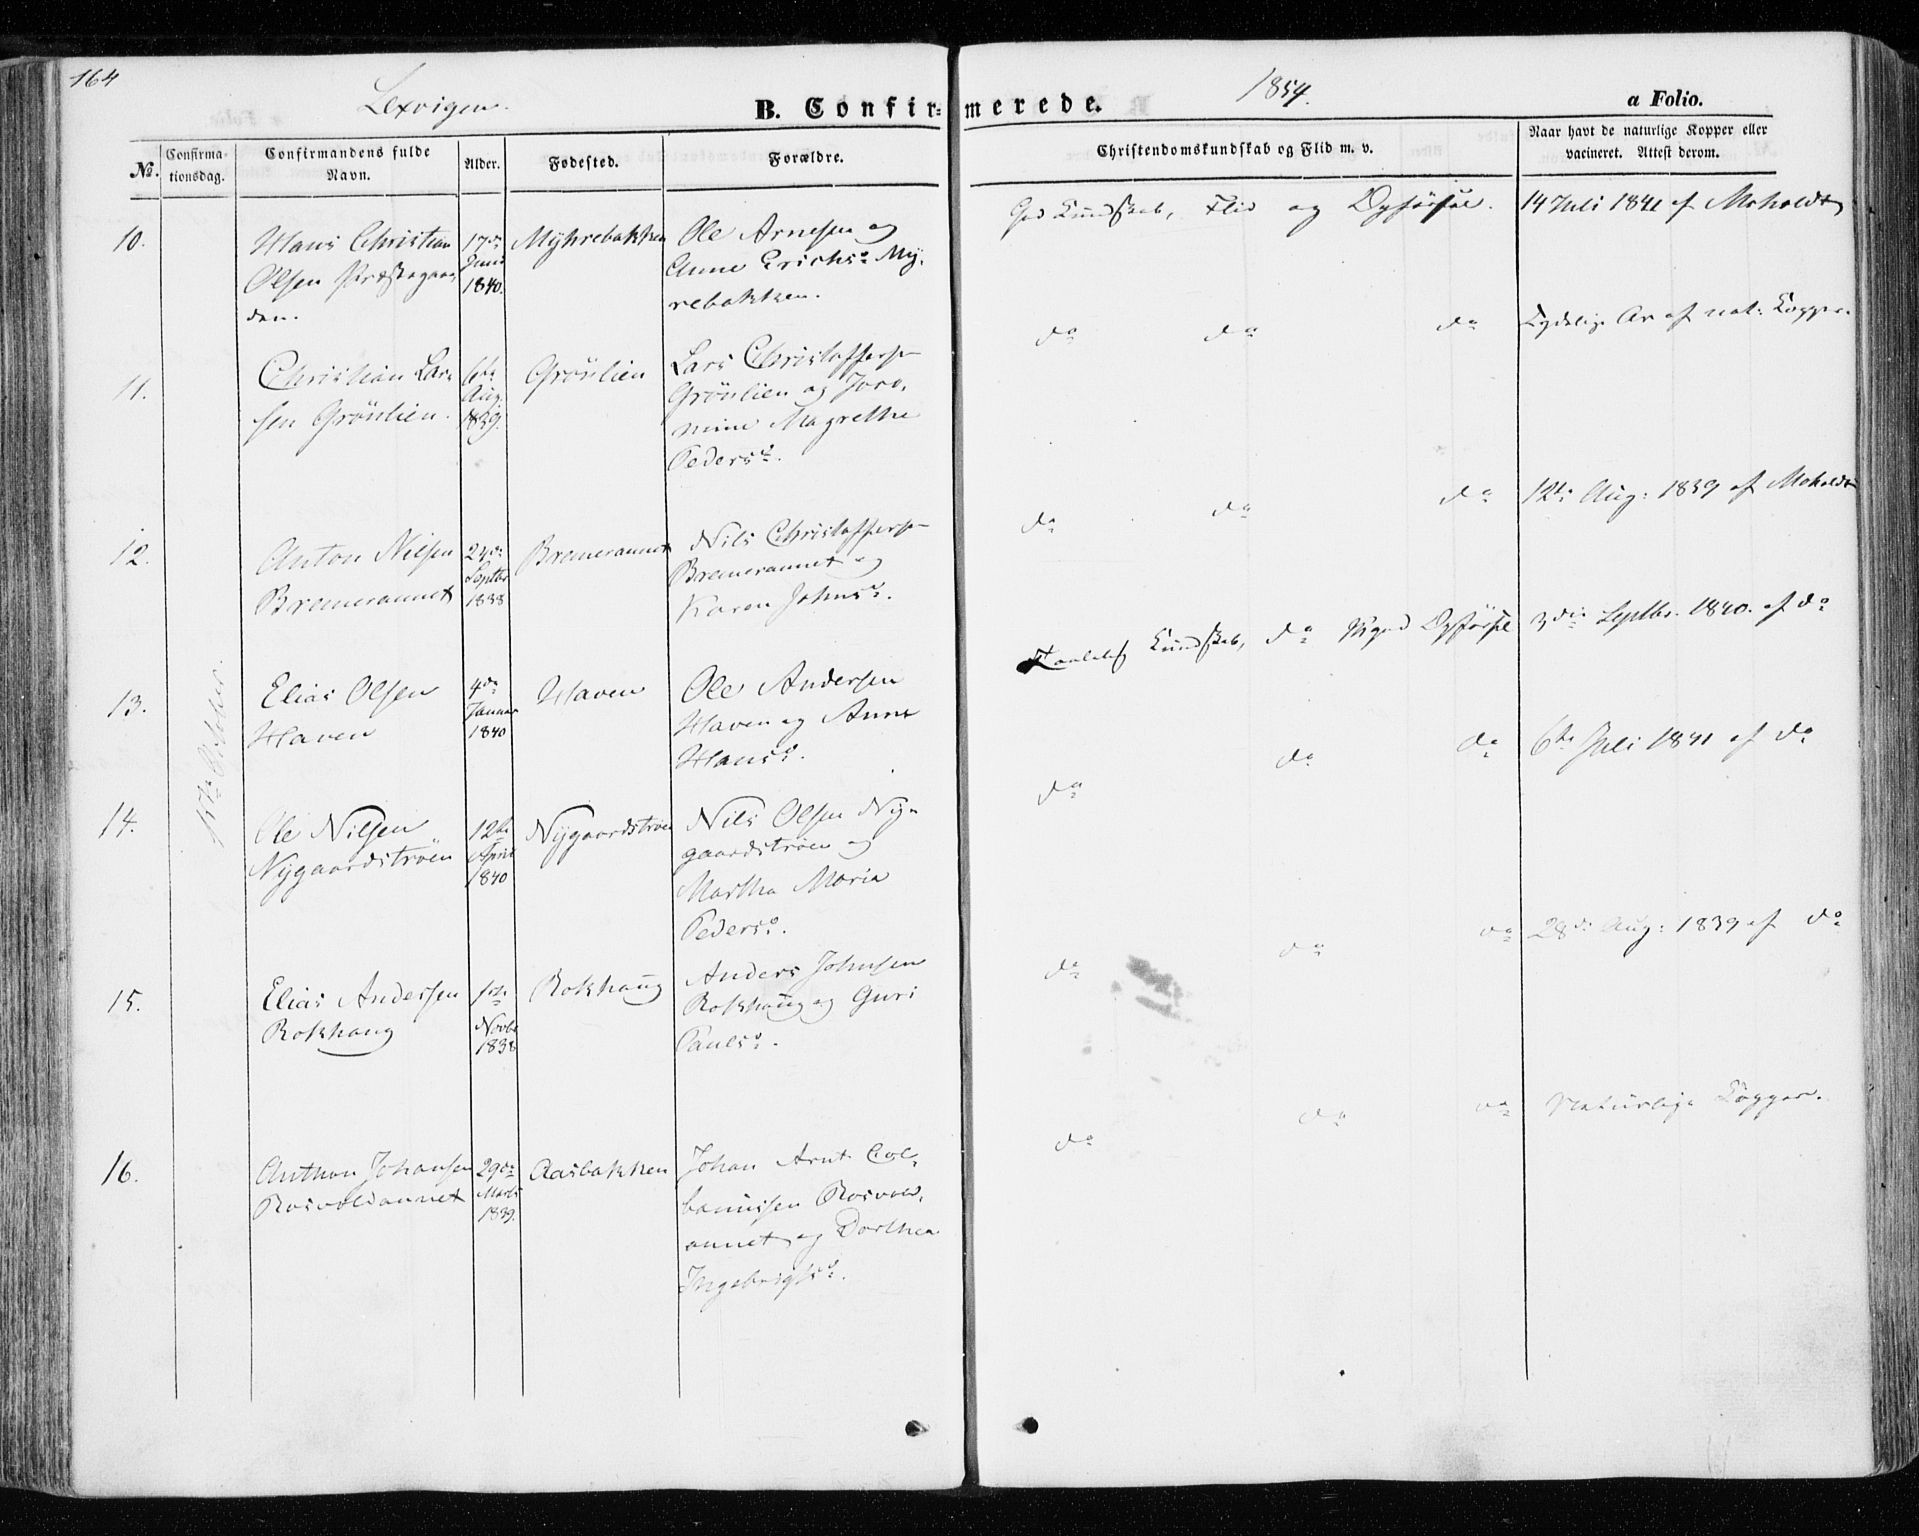 164
Lexvigen.
B. Confirmerede.
1854.
a Folio.
No.
Confirmationsdag.
Confirmandens fulde Navn.
Alder.
Fødested.
Forældre.
Christendomskundskab og Flid m. v.
Naar havt de naturlige Kopper eller
vacineret. Attest derom.
15de October.
10.
Hans Christian
Olsen Præstegaar
den.
17de
Juni
1840.
Myhrebakken
Ole Arnesen og
Anne Erichsd. My-
rebakken.
God Kundskab, Flid og Opførsel.
14 Juli 1841 af Moholdt
11.
Christian Lar-
sen Grönlien.
6te
Aug.
1839.
Grönlien
Lars Christoffersen
Grönlien og Joro-
mine Magrethe
Pedersd.
do do do
Tydelige Ar af nat: Kopper.
12.
Anton Nilsen
Bremerannet
24de
Septbr
1838
Bremerannet
Nils Christoffersen
Bremerannet og
Karen Johnsd.
do do do
12te Aug: 1839 af Moholdt
13.
Elias Olsen
Haven
4de
Januar
1840
Haven
Ole Andersen
Haven og Anne
Hansd.
Kundskab, do Opførsel
3die Septbr. 1840. af do
14.
Ole Nilsen
Nygaardstrøen
12te
April
1840
Nygaardstrøen
Nils Olsen Ny-
gaardstrøen og
Martha Maria
Pedersd.
do do do
6te Juli 1841 af do
15.
Elias Andersen
Rokhaug
1ste
Novbr
1838
Rokhaug
Anders Johnsen
Rokhaug og Guri
Paulsd.
do do do
28de Aug: 1839 af do
16.
Anthon Johansen
Rosvoldannet
29de
Marts
1839.
Aasbakken
Johan Arnt Col-
banussen Rosvold-
annet og Dorthea
Ingebrigtsd.
do do do
Naturlige Kopper.